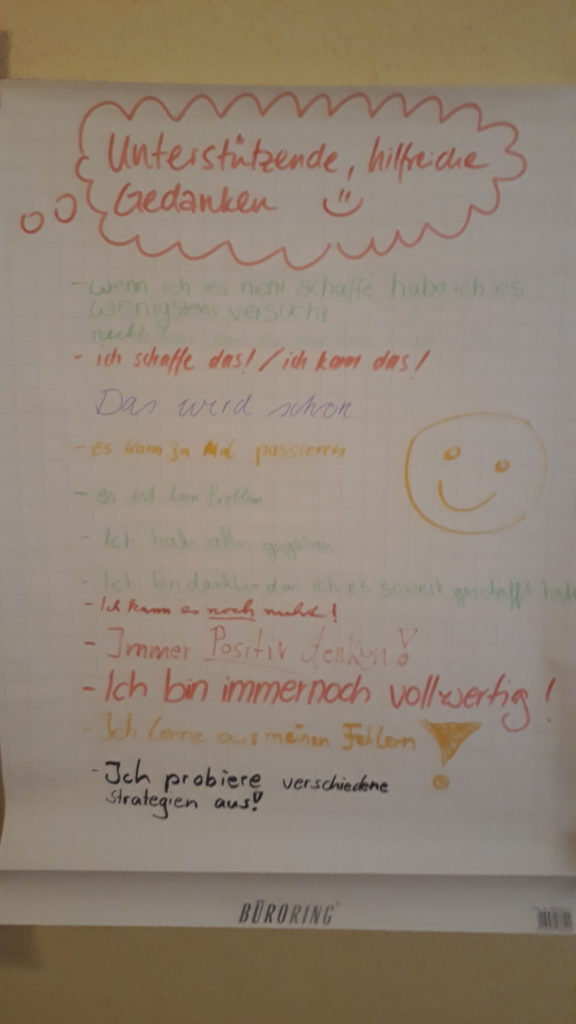 Unterstützende, hilfreiche
Gedanken
- wenn ich es nicht schaffe habe ich es
wenigstens versucht
- ich schaffe das! / ich kann das!
Das wird schon
- es kann ja Mal passieren
- es ist kein Problem
- Ich habe alles gegeben
- Ich bin dankbar das ich es soweit geschafft habe
- Ich kann es noch nicht!
- Immer Positiv denken!
- Ich bin immernoch vollwertig!
- Ich lerne aus meinen Fehlern !
- Ich probiere verschiedene
strategien aus!
BÜRORING